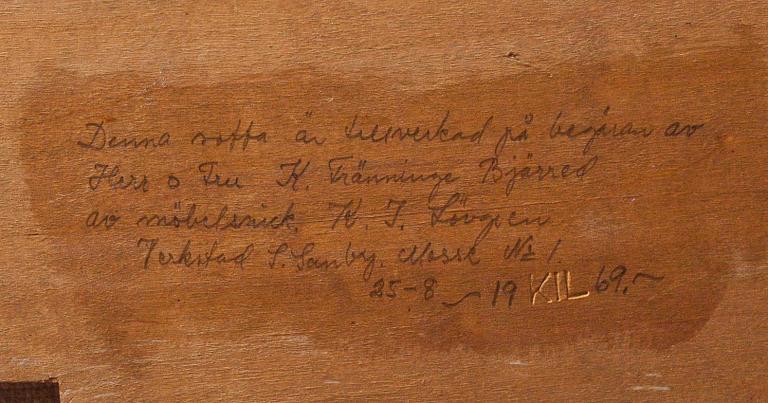 Denna soffa är tillverkad på begäran av
Herr o Fru K. Fränninge Bjärred
av möbelsnick. K. I. Lövgren
Verkstad S. Sanby. Mosse № 1.
25-8 – 19 KIL 69.–